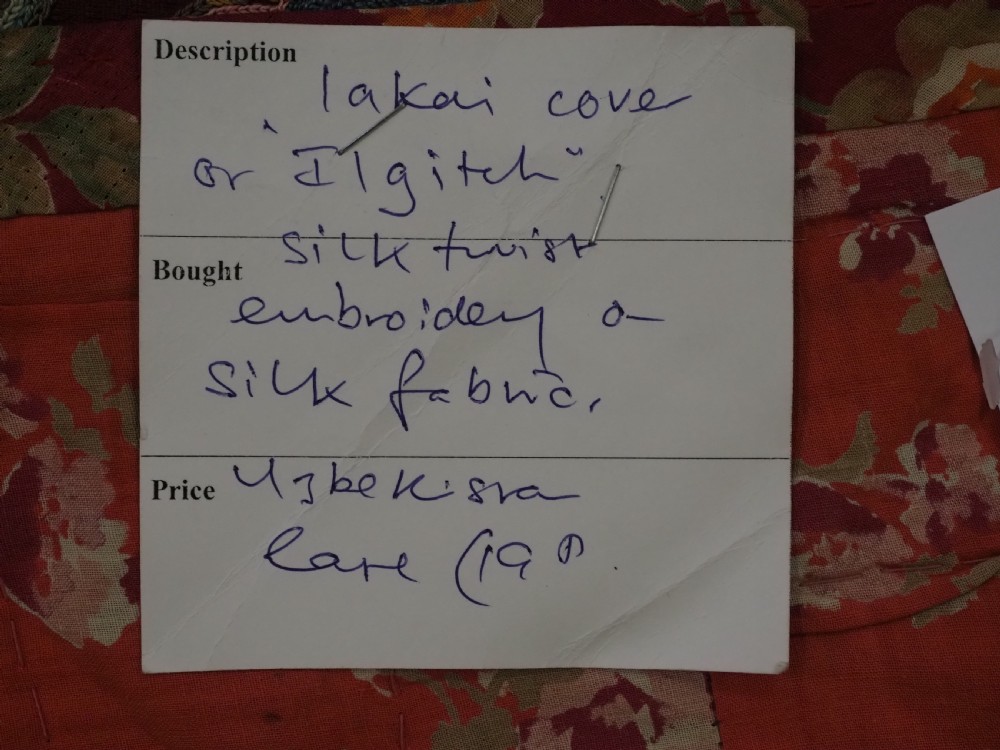 Description
lakai cover
or "Ilgitch"
silk twist
Bought
embroidery on
silk fabric.
Price Uzbekistan
late C19th.